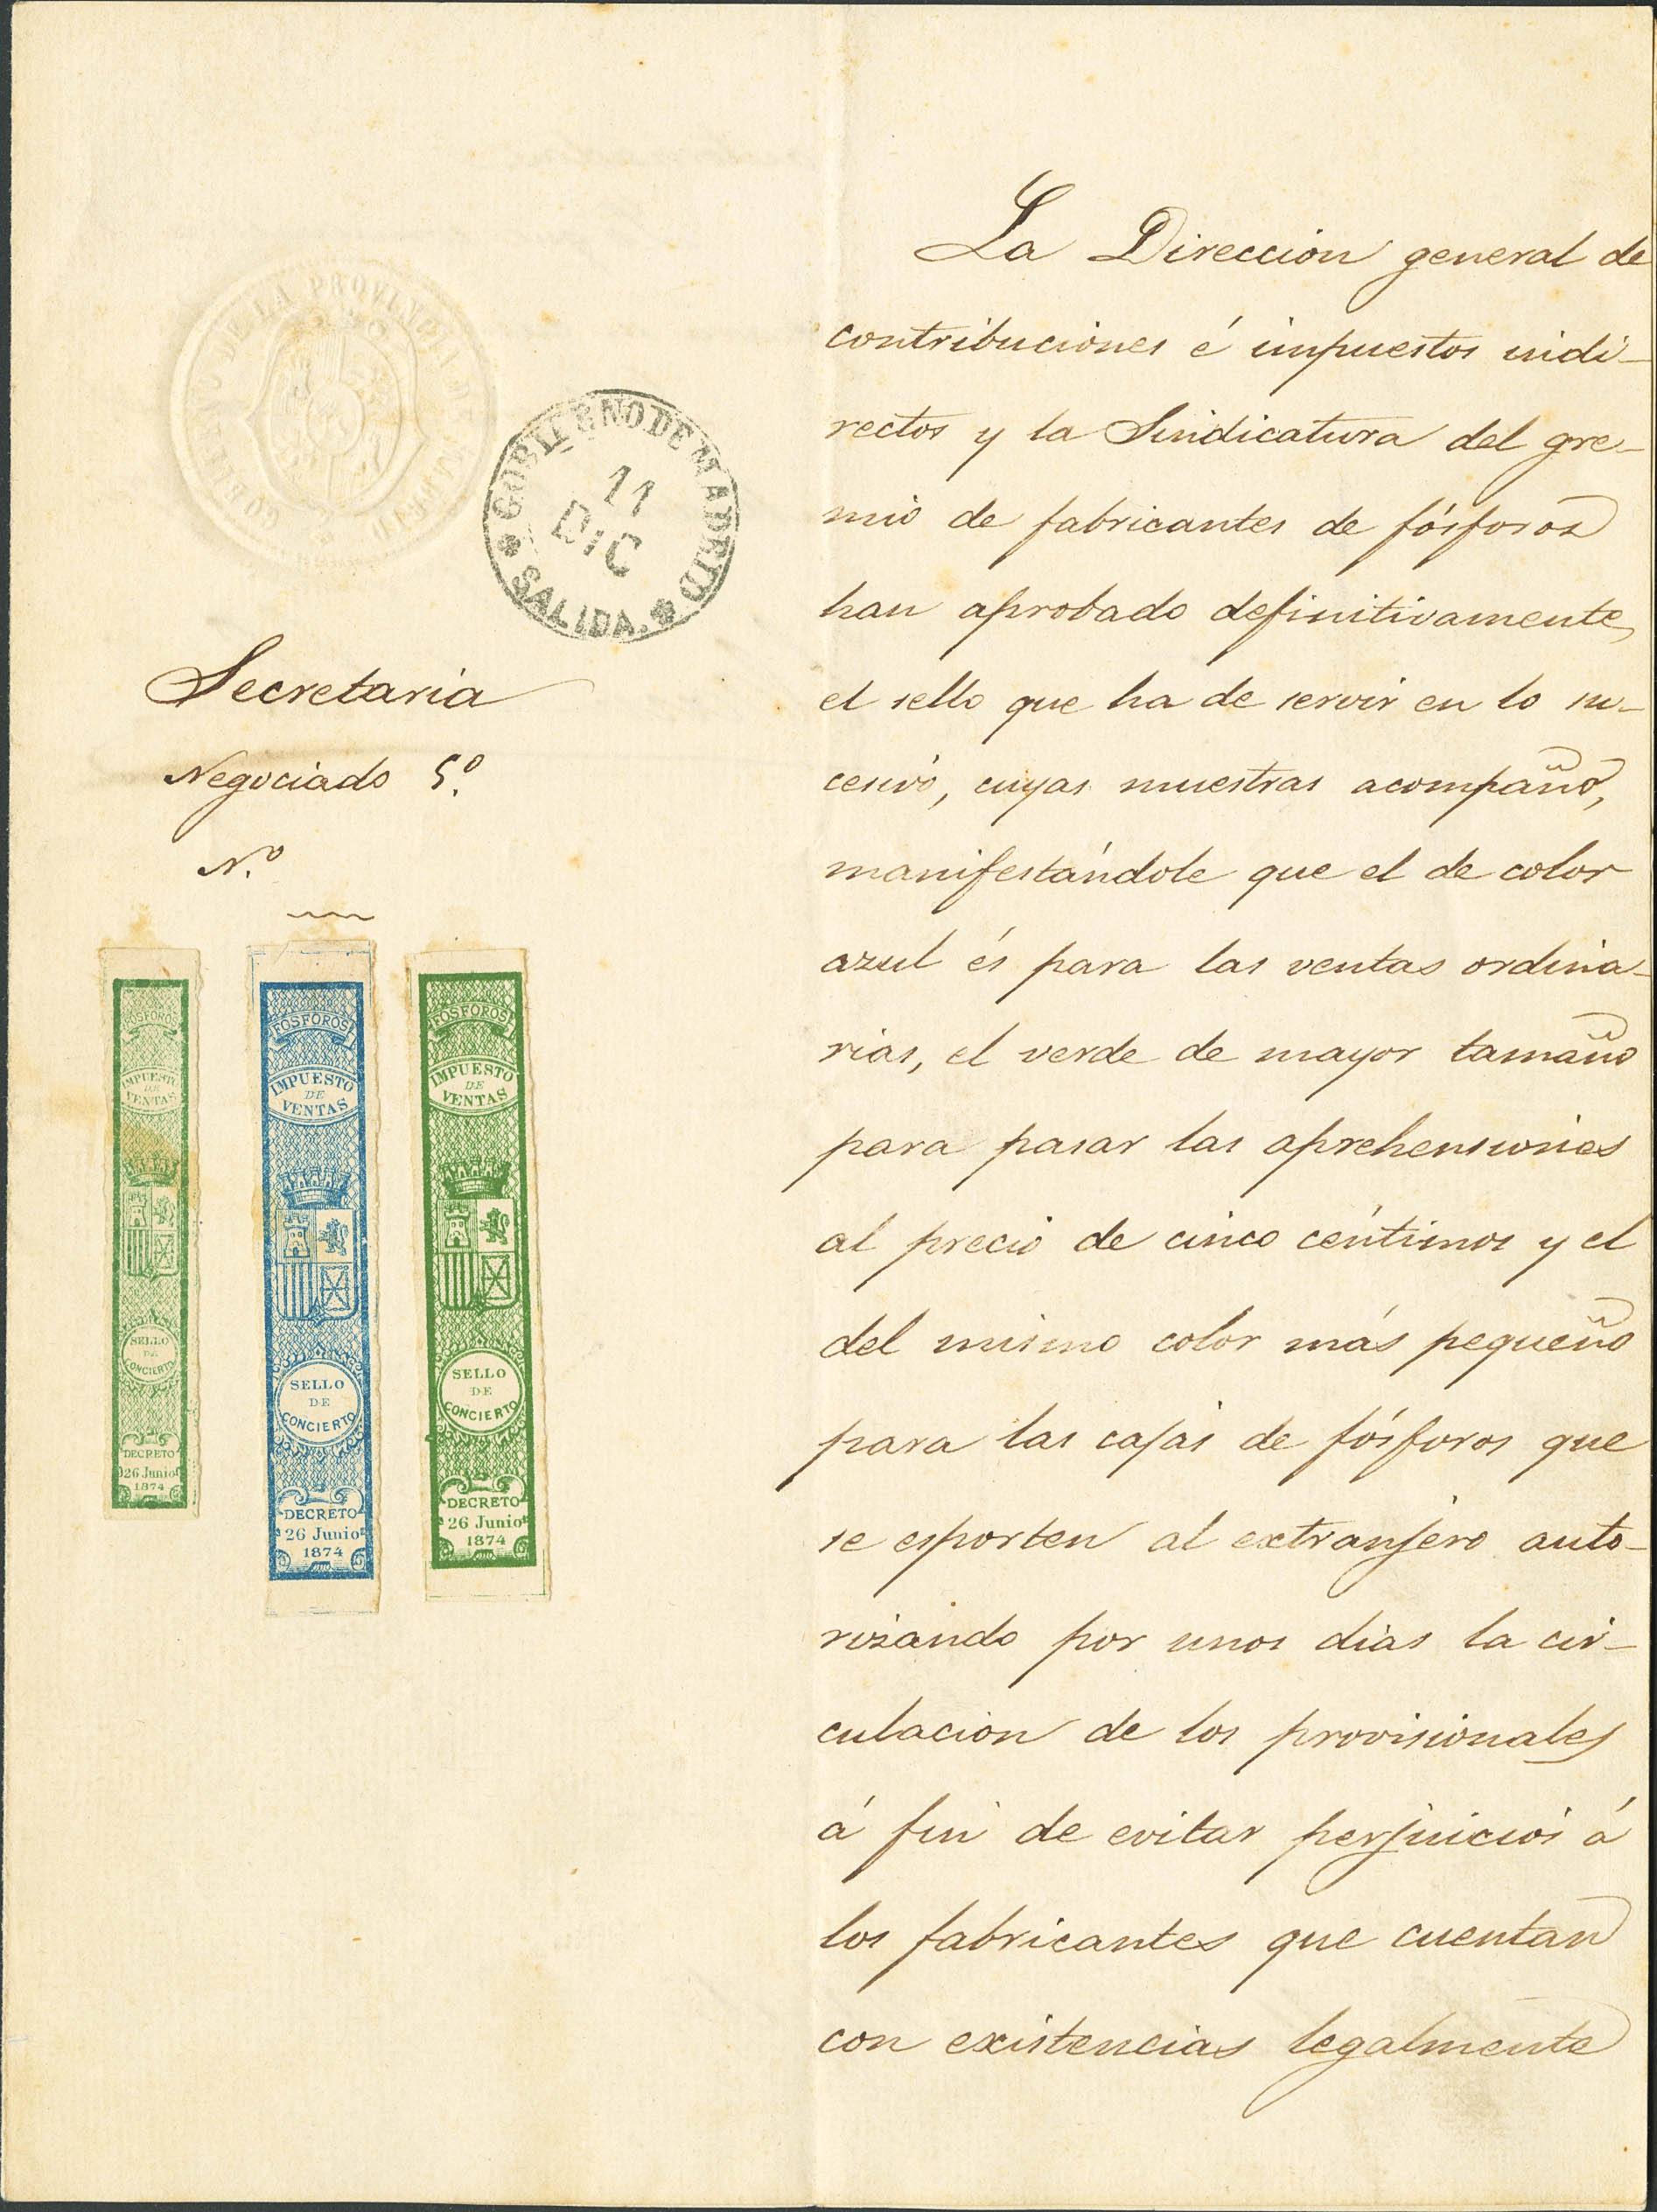 GOBIERNO DE LA PROVINCIA DE MADRID
GOBIERNO DE MADRID
11
DIC
SALIDA.
Secretaria
Negociado 5.º
N.º
FOSFOROS
IMPUESTO
DE
VENTAS
SELLO
DE
CONCIERTO
DECRETO
26 Junio
1874
FOSFOROS
IMPUESTO
DE
VENTAS
SELLO
DE
CONCIERTO
DECRETO
26 Junio
1874
FOSFOROS
IMPUESTO
DE
VENTAS
SELLO
DE
CONCIERTO
DECRETO
26 Junio
1874
La Dirección general de
contribuciones é impuestos indi-
rectos y la Sindicatura del gre-
mio de fabricantes de fósforos
han aprobado definitivamente,
el sello que ha de servir en lo su-
cesivo, cuyas muestras acompaño,
manifestándole que el de color
azul és para las ventas ordina-
rias, el verde de mayor tamaño
para pasar las aprehensiones
al precio de cinco céntimos y el
del mismo color más pequeño
para las cajas de fósforos que
se esporten al extranjero auto-
rizando por unos dias la cir-
culacion de los provisionales
á fin de evitar perjuicios á
los fabricantes que cuentan
con existencias legalmente